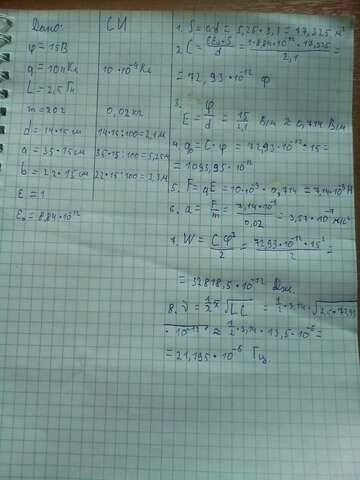 Дано:
СИ
φ = 15В
q = 10нКл 10·10⁻⁹Кл
L = 2,5 Гн
m = 20г 0,02кг
d = 14·15см 14·15:100=2,1м
a = 35·15см 35·15:100=5,25м
b = 22·15см 22·15:100=3,3м
ε = 1
ε₀ = 8,84·10¹²
1. S = a·b = 5,25·3,3 = 17,325 м²
2. C = εε₀·S/d = 1·8,84·10⁻¹²·17,325/2,1 =
= 72,93·10⁻¹² Ф
3. E = φ/d = 15/2,1 В/м ≈ 0,714 В/м
4. q₀ = C·φ = 72,93·10⁻¹²·15 =
= 1093,95·10⁻¹²
5. F = qE = 10·10⁻⁹·0,714 = 7,14·10⁻⁹Н
6. a = F/m = 7,14·10⁻⁹/0,02 = 3,57·10⁻⁷ м/с²
7. W = Cφ²/2 = 72,93·10⁻¹²·15²/2 =
= 32818,5·10⁻¹² Дж.
8. ν = ½π√LC = ½·3,14·√2,5·72,93
·10⁻¹² ≈ ½·3,14·13,5·10⁻⁶ =
= 21,195·10⁻⁶ Гц.